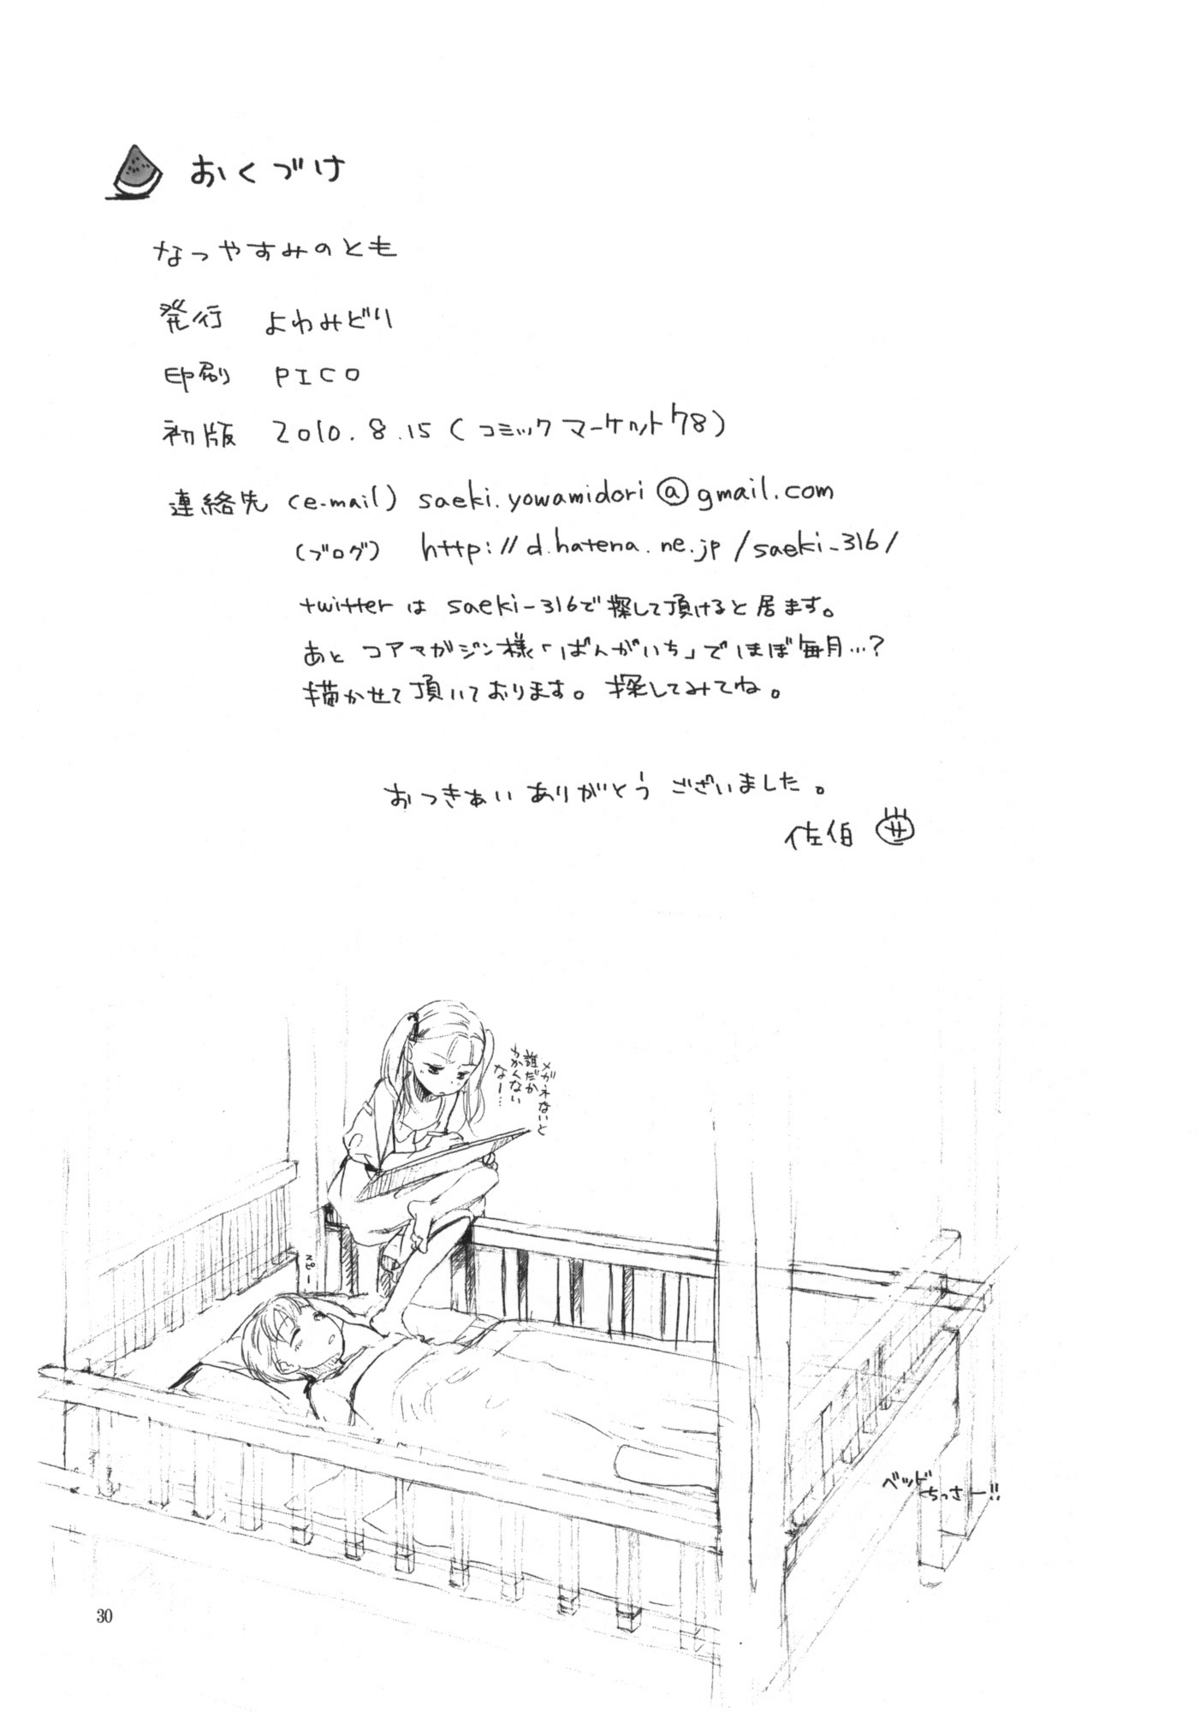 おくづけ
なつやすみのとも
発行 よわみどり
印刷 PICO
初版 2010.8.15(コミックマーケット78)
連絡先 (e-mail) saeki.yowamidori@gmail.com
(ブログ) http://d.hatena.ne.jp/saeki_316/
twitterは saeki-316で探して頂けると居ます。
あと コアマガジン様「ばんがいち」でほぼ毎月…?
描かせて頂いております。探してみてね。
おつきあい ありがとう ございました。
佐伯 サ
メガネないと
誰だか
わかんない
なー…
ベッド
ちっさー!!
30